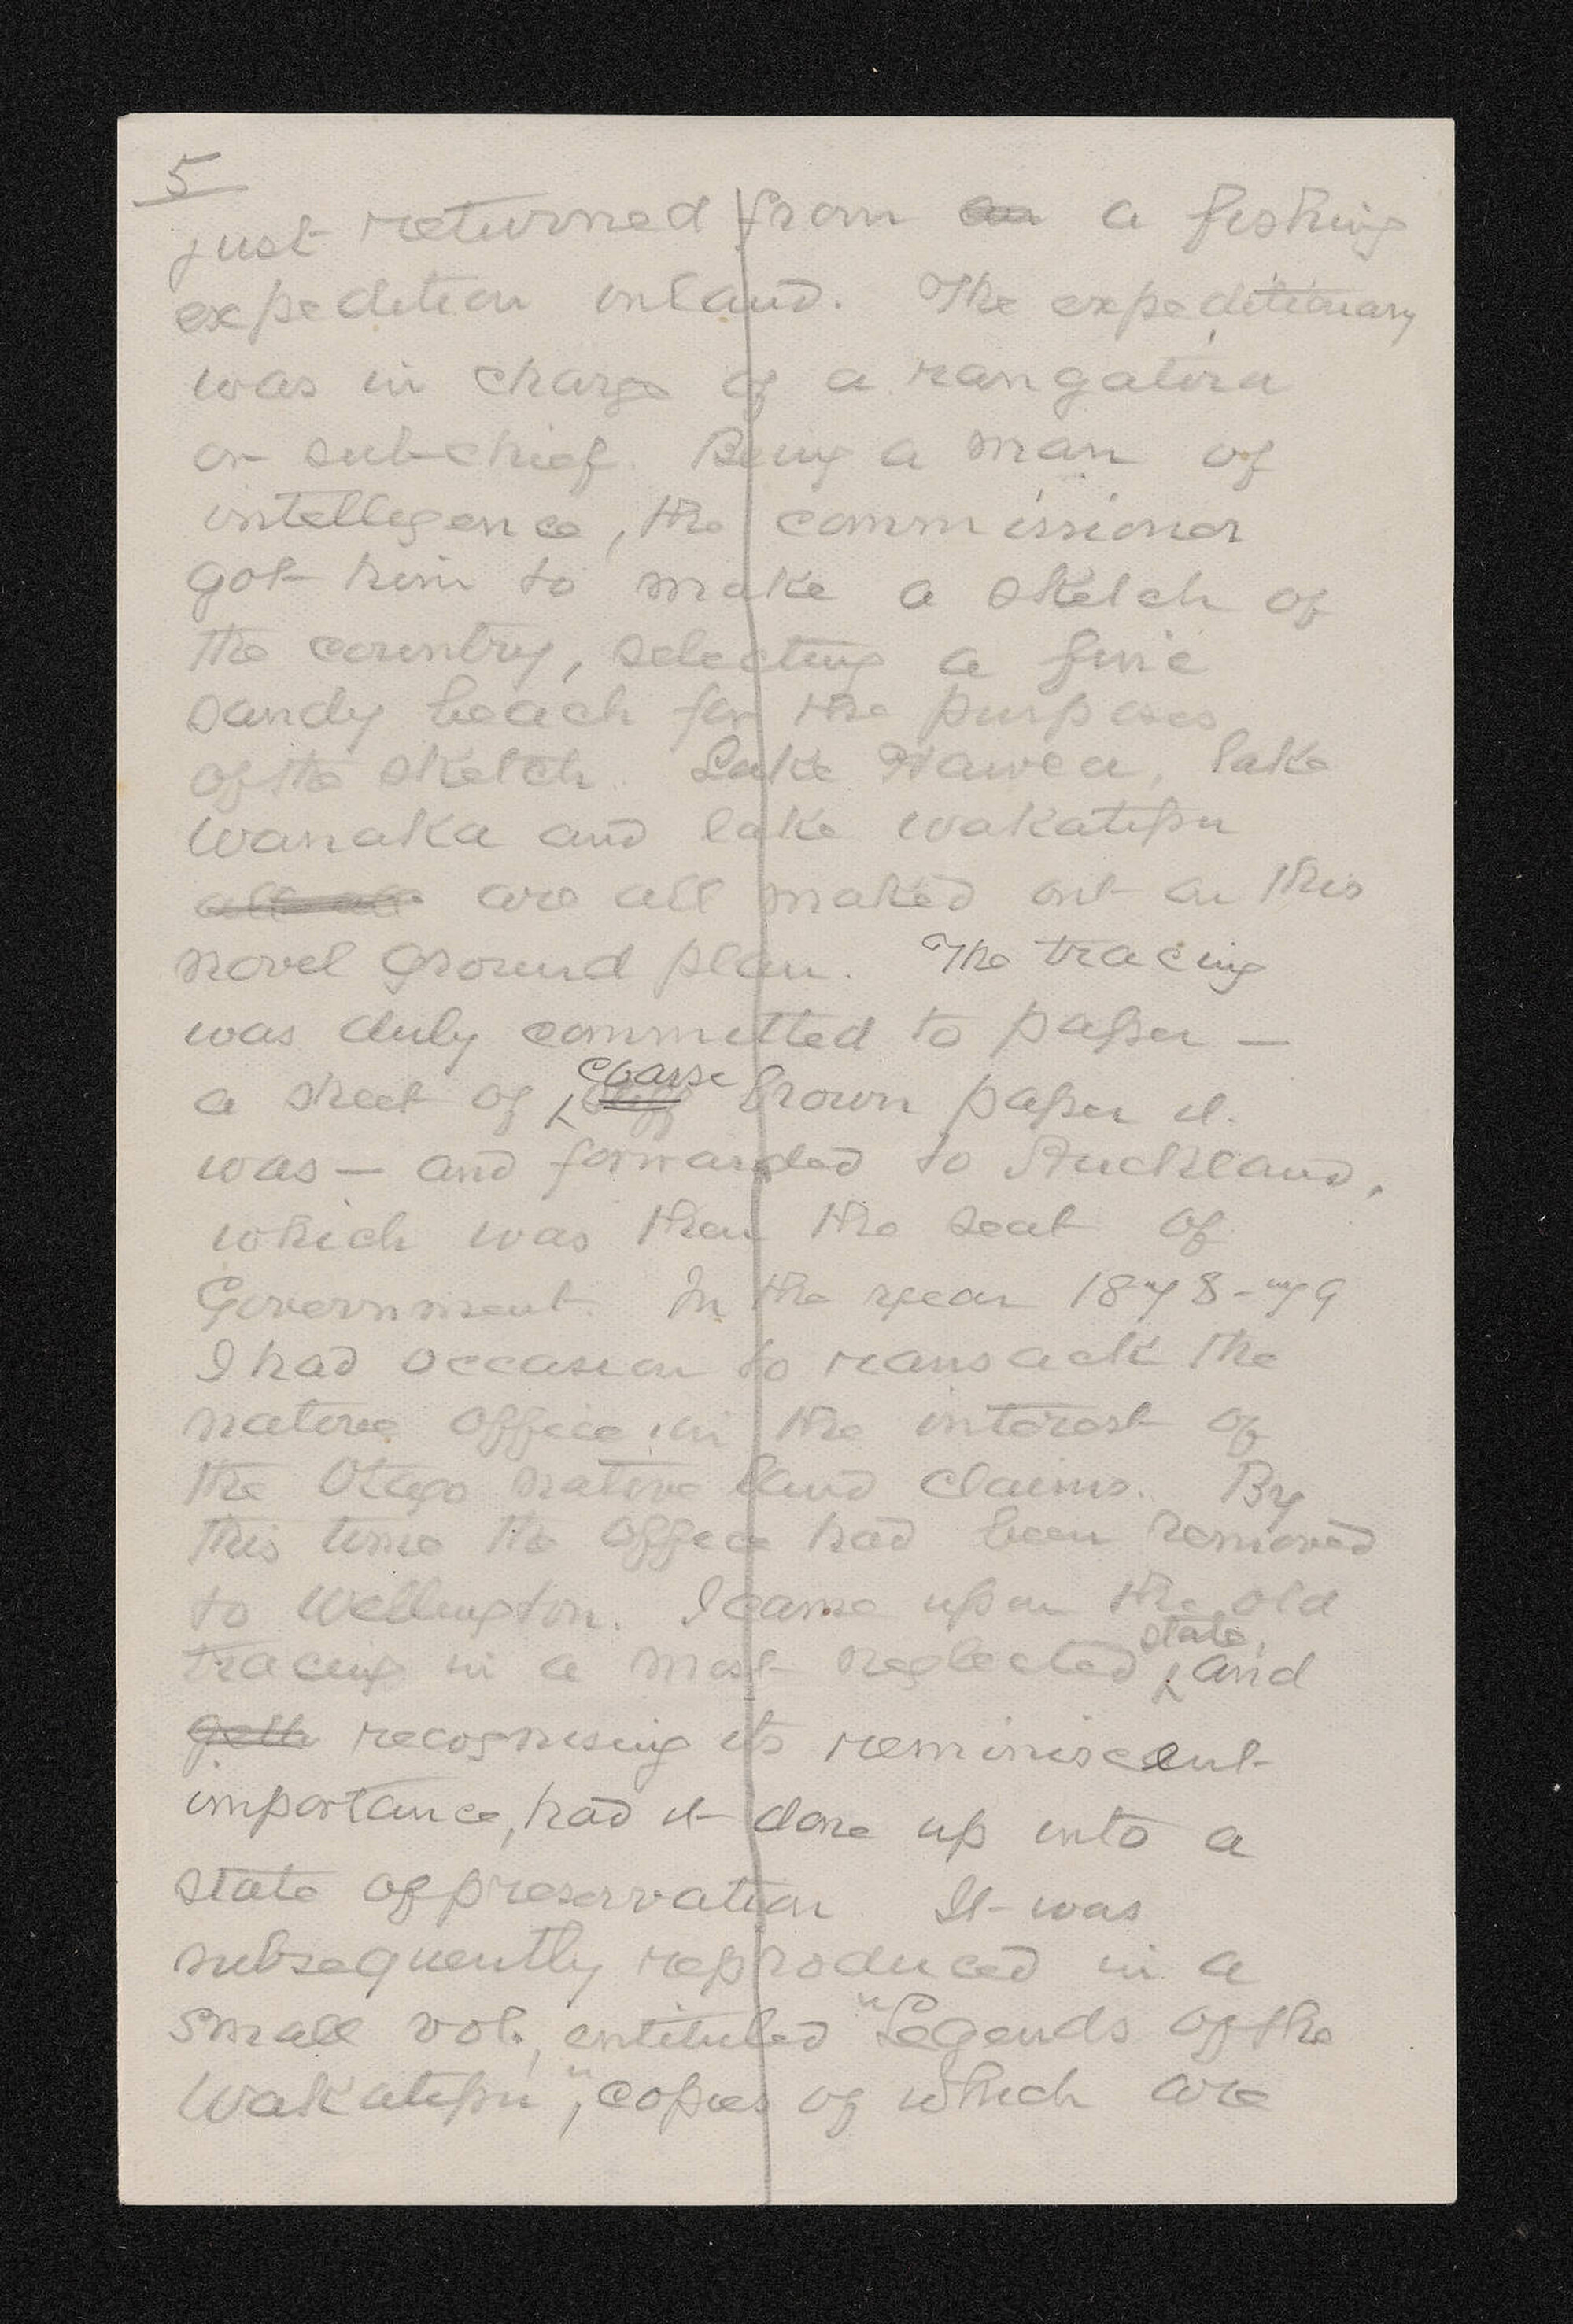 5
just returned from an a fishing
expedition inland. The expeditionary
was in charge of a rangatira
or sub-chief. Being a man of
intelligence, the commissioner
got him to make a sketch of
the country, selecting a fine
sandy beach for the purposes
of the sketch. Lake Hawea, lake
Wanaka and lake wakatipu
are all maked out on this
novel ground plan. The tracing
was duly committed to paper —
coarse
a sheet of stiff brown paper it
was — and forwarded to Auckland,
which was then the seat of
Government. In the year 1878-79
I had occasion to ransack the
native office in the interest of
the Otago native land claims. By
this time the office had been removed
to Wellington. I came upon the old
state,
tracing in a most neglected and
recognising its reminiscent
importance, had it done up into a
state of preservation. It was
subsequently reproduced in a
small vol., entituled "Legends of the
Wakatipu", copies of which are